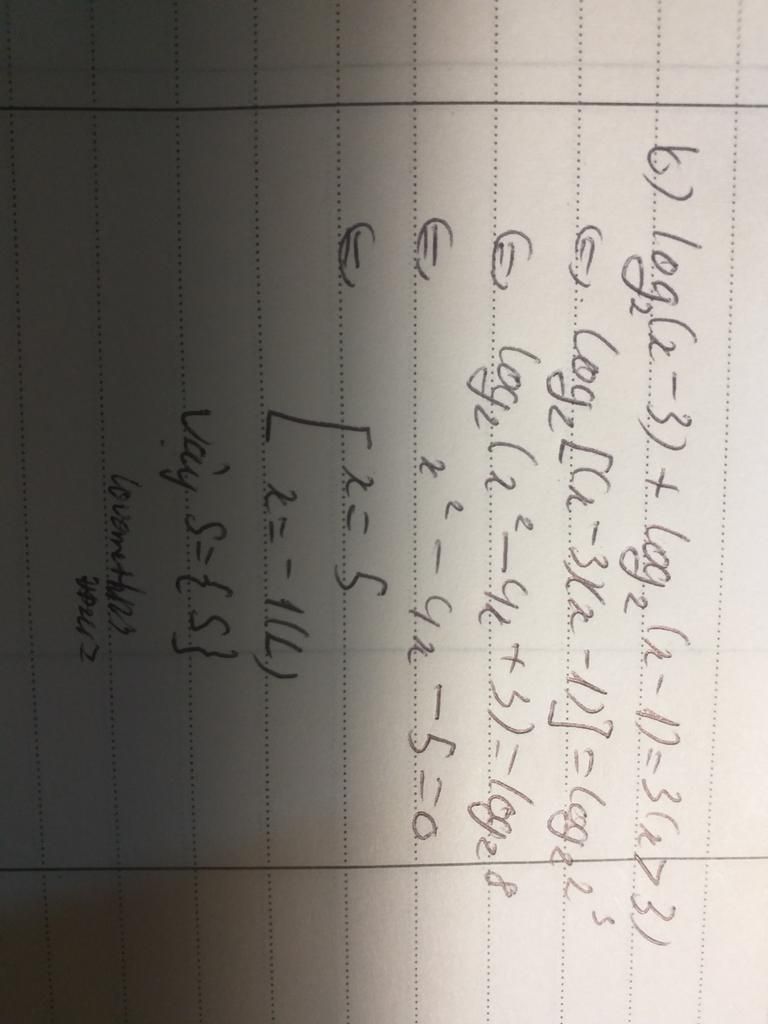 b) log₂(x-3) + log₂(x-1) = 3 (x > 3)
⇔ log₂[(x-3)(x-1)] = log₂2³
⇔ log₂(x² - 4x + 3) = log₂8
⇔ x² - 4x - 5 = 0
⇔ [ x = 5
x = -1 (L)
Vậy S = {5}